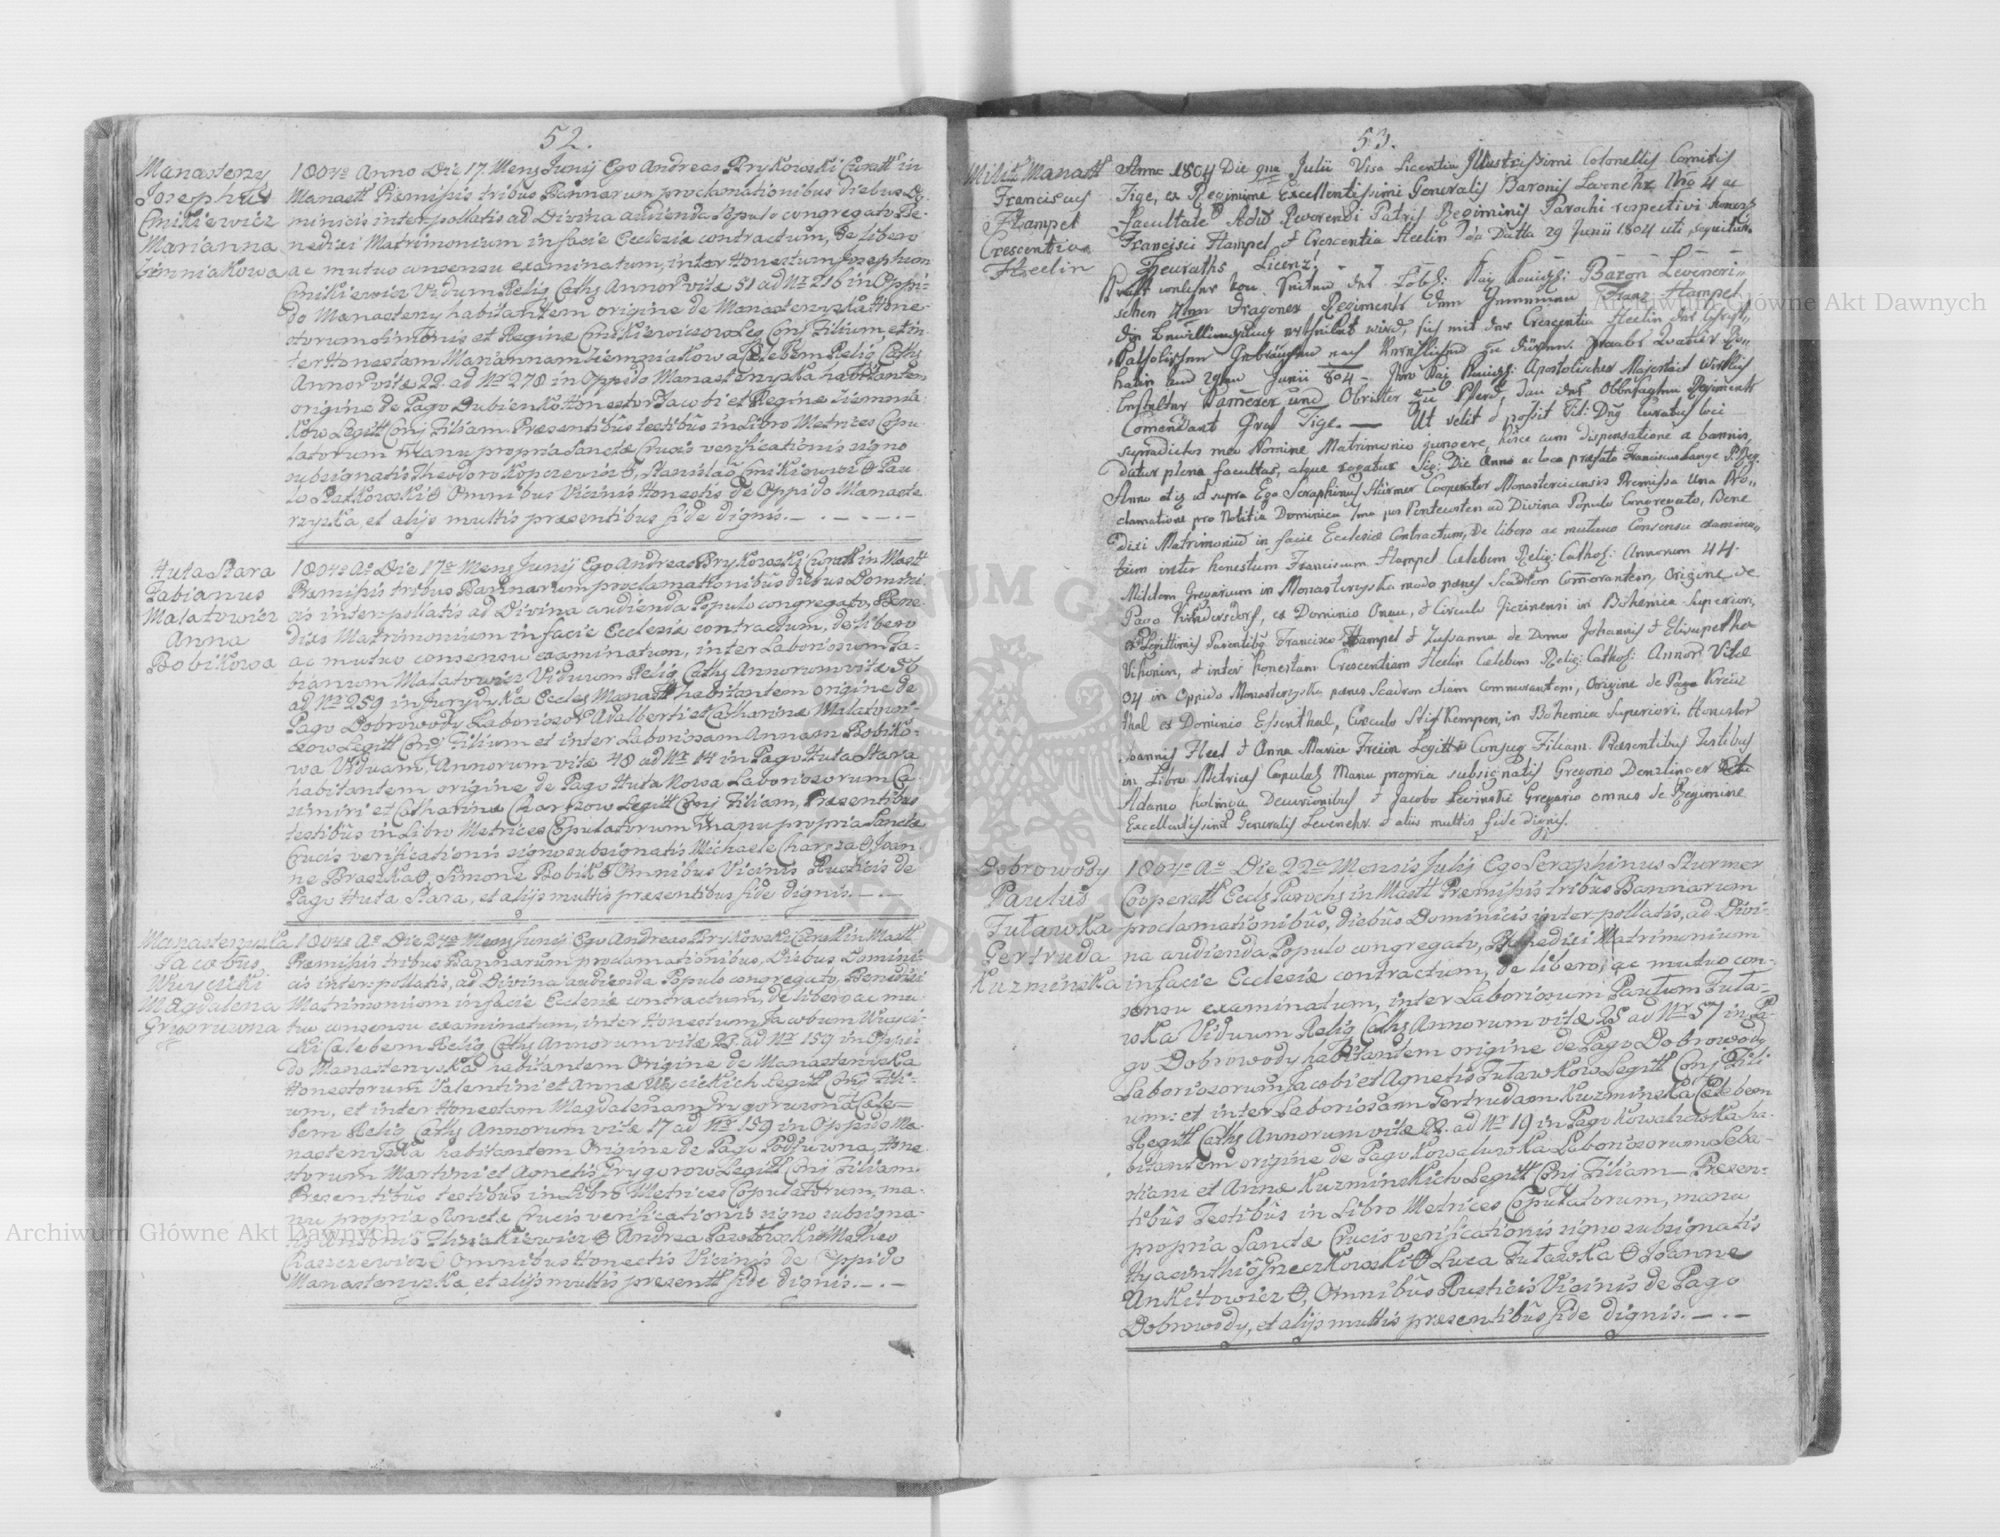 52.
Manasterzy
Josephus
Cmikiewicz
Marianna
Ziemniakowa
1804to Anno Die 17. Mens Junij Ego Andreas Prykowski Curatt in
Manastt Præmissis tribus Bannarum proclamationibus diebus Do-
minicis inter pollatis ad Divina audienda Populo congregato Be-
nedixi Matrimonium in facie Ecclesiæ contractum, de libero
ac mutuo consensu examinatum, inter Honestum Josephum
Cmikiewicz Viduum Relig Cathz Annor vitæ 51 ad Nr 216 in Oppi-
do Manasterzy habitantem origine de Manasterzyska Hone-
storum Simonis et Reginæ Cmikiewiczow Leg Conj Filium et in-
ter Honestam Mariannam Ziemniakowa Cælebem Relig Cathz
Annor vitæ 22. ad Nr 278 in Oppido Manasterzyska habitantem
origine de Pago Dubienko Honestor Jacobi et Reginæ Ziemnia-
kow Legitt Conj Filiam. Præsentibus testibus in Libro Metrices Copu-
latorum Manu propria Sanctæ Crucis verificationis signo
subsignatis Theodoro Kopczewicz, Stanislao Cmikiewicz et Pau-
lo Patkowski Omnibus Vicinis Honestis de Oppido Manaste
rzyska, et alijs multis præsentibus fide dignis.
Huta Stara
Fabianus
Malatowicz
Anna
Bobikowa
1804to Ao Die 17a Mens Junij Ego Andreas Prykowski Curatt in Mastt
Præmissis tribus Bannarum proclamationibus diebus Domini-
cis inter pollatis ad Divina audienda Populo congregato, Bene
dixi Matrimonium in facie Ecclesiæ contractum, de libero
ac mutuo consensu examinatum, inter Laboriosum Fa-
bianum Malatowicz Viduum Relig Cathz Annorum vitæ 56
ad Nr 259 in Jurydyka Eccles Manastt habitantem origine de
Pago Dobrowody Laboriosor Adalberti et Catharinæ Malatowi-
czow Legitt Conj Filium et inter Laboriosam Annam Bobiko-
wa Viduam, Annorum vitæ 48 ad Nr 14 in Pago Huta Stara
habitantem origine de Pago Huta Nowa Laboriosorum Ca
zimiri et Catharinæ Charzow Legitt Conj Filiam, Præsentibus
testibus in Libro Metrices Copulatorum Manu propria Sanctæ
Crucis verificationis signo subsignatis Michaele Charzza, Joan-
ne Braszka, Simone Bobik Omnibus Vicinis Rusticis de
Pago Huta Stara, et alijs multis præsentibus fide dignis.
Manasterzyska
Jacobus
Wuycicki
Magdalena
Gryoruwna
1804to Ao Die 24ta Mens Junij Ego Andreas Prykowski Curatt in Mastt
Præmissis tribus Bannarum proclamationibus, Diebus Domini-
cis inter pollatis, ad Divina audienda Populo congregato, Benedixi
Matrimonium in facie Ecclesiæ contractum, de libero ac mu-
tuo consensu examinatum, inter Honestum Jacobum Wuyci-
cki Cælebem Relig Cathz Annorum vitæ 23. ad Nr 159 in Oppi-
do Manasterzyska habitantem Origine de Manasterzyska
Honestorum Valentini et Annæ Wuycickich Legitt Conj Fili-
um, et inter Honestam Magdalenam Grygoruwna Cæle-
bem Relig Cathz Annorum vitæ 17 ad Nr 159 in Oppido Ma-
nasterzyska habitantem Origine de Pago Podluwna, Hone
storum Martini et Agnetis Grygorow Legitt Conj Filiam.
Præsentibus testibus in Libro Metrices Copulatorum, ma-
nu propria Sanctæ Crucis verificationis signo subsigna-
tis Andrea Pawlowski Matheo
Omnibus Honestis Vicinis de Oppido
Manasterzyska, et alijs multis præsentt fide dignis.
53.
Milit Manastt
Franciscus
Hampel
Crescentia
Heelin
Anno 1804 Die 9na Julii Viso Licentia Illustrissimi Colonellis Comitis
Tige, ex Regimine Excellentissimi Generalis Baronis Levenehr Nro 4 ac
facultate Adm Reverendi Patris Regiminis Parochi respectivi
Francisci Hampel, et Crescentia Heelin da Datta 29 Junii 1804 uti sequitur.
Heuraths Licenz!
Kraft welcher von Seiten des Löbl: Kay Königl: Baron Leveneri-
schen 4ten Dragoner Regiments dem Gemeinen Franz Hampel
die Bewilligung ertheilet wird, sich mit der Crescentia Heelin
Katholischen Gebräuchen nach verehlichen zu dürfen.
hatin den 29ten Junii 804 - Kay Königl: Apostolischer Majestät Wirklich
bestellter Kamerer und Obrister zu Pferd, dan des Regiments
Comendant Graf Tige. — Ut velit et possit Tit: Dnus Curatus loci
supradictus meo Nomine Matrimonio jungere, hisce cum dispensatione a bannis,
datur plena facultas, atque rogatus Sig: Die Anno ac loco præfato Franciscus Lange
Anno et ut supra Ego Seraphinus Stürmer Cooperator Monastericensis Premissa Una Pro-
clamatione pro Notitia Dominica post Pentecosten ad Divina Populo Congregato, Bene
dixi Matrimonium in facie Ecclesiæ Contractum, De libero ac mutuo Consensu examina-
tum inter honestum Franciscum Hampel Celebem Relig: Cathol: Annorum 44.
Militem Gregarium in Monasterzyska modo penes Scadron Comorantem, Origine de
Pago ex Dominio et Circulo Jicinensi in Bohemia Superiori,
ex Legittimis Parentibus Francisco Hampel et Zussanna de Domo Johannis et Elisupetha
et inter honestam Crescentiam Heelin Celebem Relig: Cathol: Annor Vitæ
34 in Oppido Monasterzyska penes Scadron etiam commorantem, Origine de Pago Kreüz
thal ex Dominio Essenthal, Circulo Stift Kempen, in Bohemia Superiori. Honestor
Joannis Heel et Anna Maria Freiin Legitt Conjug Filiam. Præsentibus Testibus
in Libro Metrices Copulatt Manu propria subsignatis Gregorio Denzlinger
Adamo Kolinga Decurionibus et Jacobo Levinski Gregario omnes de Regimine
Excellentissimi Generalis Levenehr. et aliis multis fide Dignis.
Dobrowody
Paulus
Tutawska
Gertruda
Kuzminska
1804to Ao Die 22a Mensis Julij Ego Seraphinus Sturmer
Cooperatt Eccls Parochs in Mastt Præmissis tribus Bannarum
proclamationibus, Diebus Dominicis inter pollatis, ad Divi-
na audienda Populo congregato, Benedixi Matrimonium
in facie Ecclesiæ contractum, de libero, ac mutuo con-
sensu examinatum, inter Laboriosum Paulum Tuta-
wska Viduum Relig Cathz Annorum vitæ 25 ad Nr 57 in Pa-
go Dobrowody habitantem origine de Pago Dobrowody
Laboriosorum Jacobi et Agnetis Tutawskow Legitt Conj Fili
um: et inter Laboriosam Gertrudam Kuzminska Cælebem
Religitt Cathz Annorum vitæ 22. ad Nr 19 in Pago Kowaluwka ha-
bitantem origine de Pago Kowaluwka Laboriosorum Seba-
stiani et Annæ Kuzminskich Legitt Conj Filiam — Præsen-
tibus Testibus in Libro Metrices Copulatorum, manu
propria Sanctæ Crucis verificationis signo subsignatis
Hyacinthio Greczkowski Luca Tutawska Joanne
Ankitowicz, Omnibus Rusticis Vicinis de Pago
Dobrowody, et alijs multis præsentibus fide dignis.
Archiwum Główne Akt Dawnych
Archiwum Główne Akt Dawnych